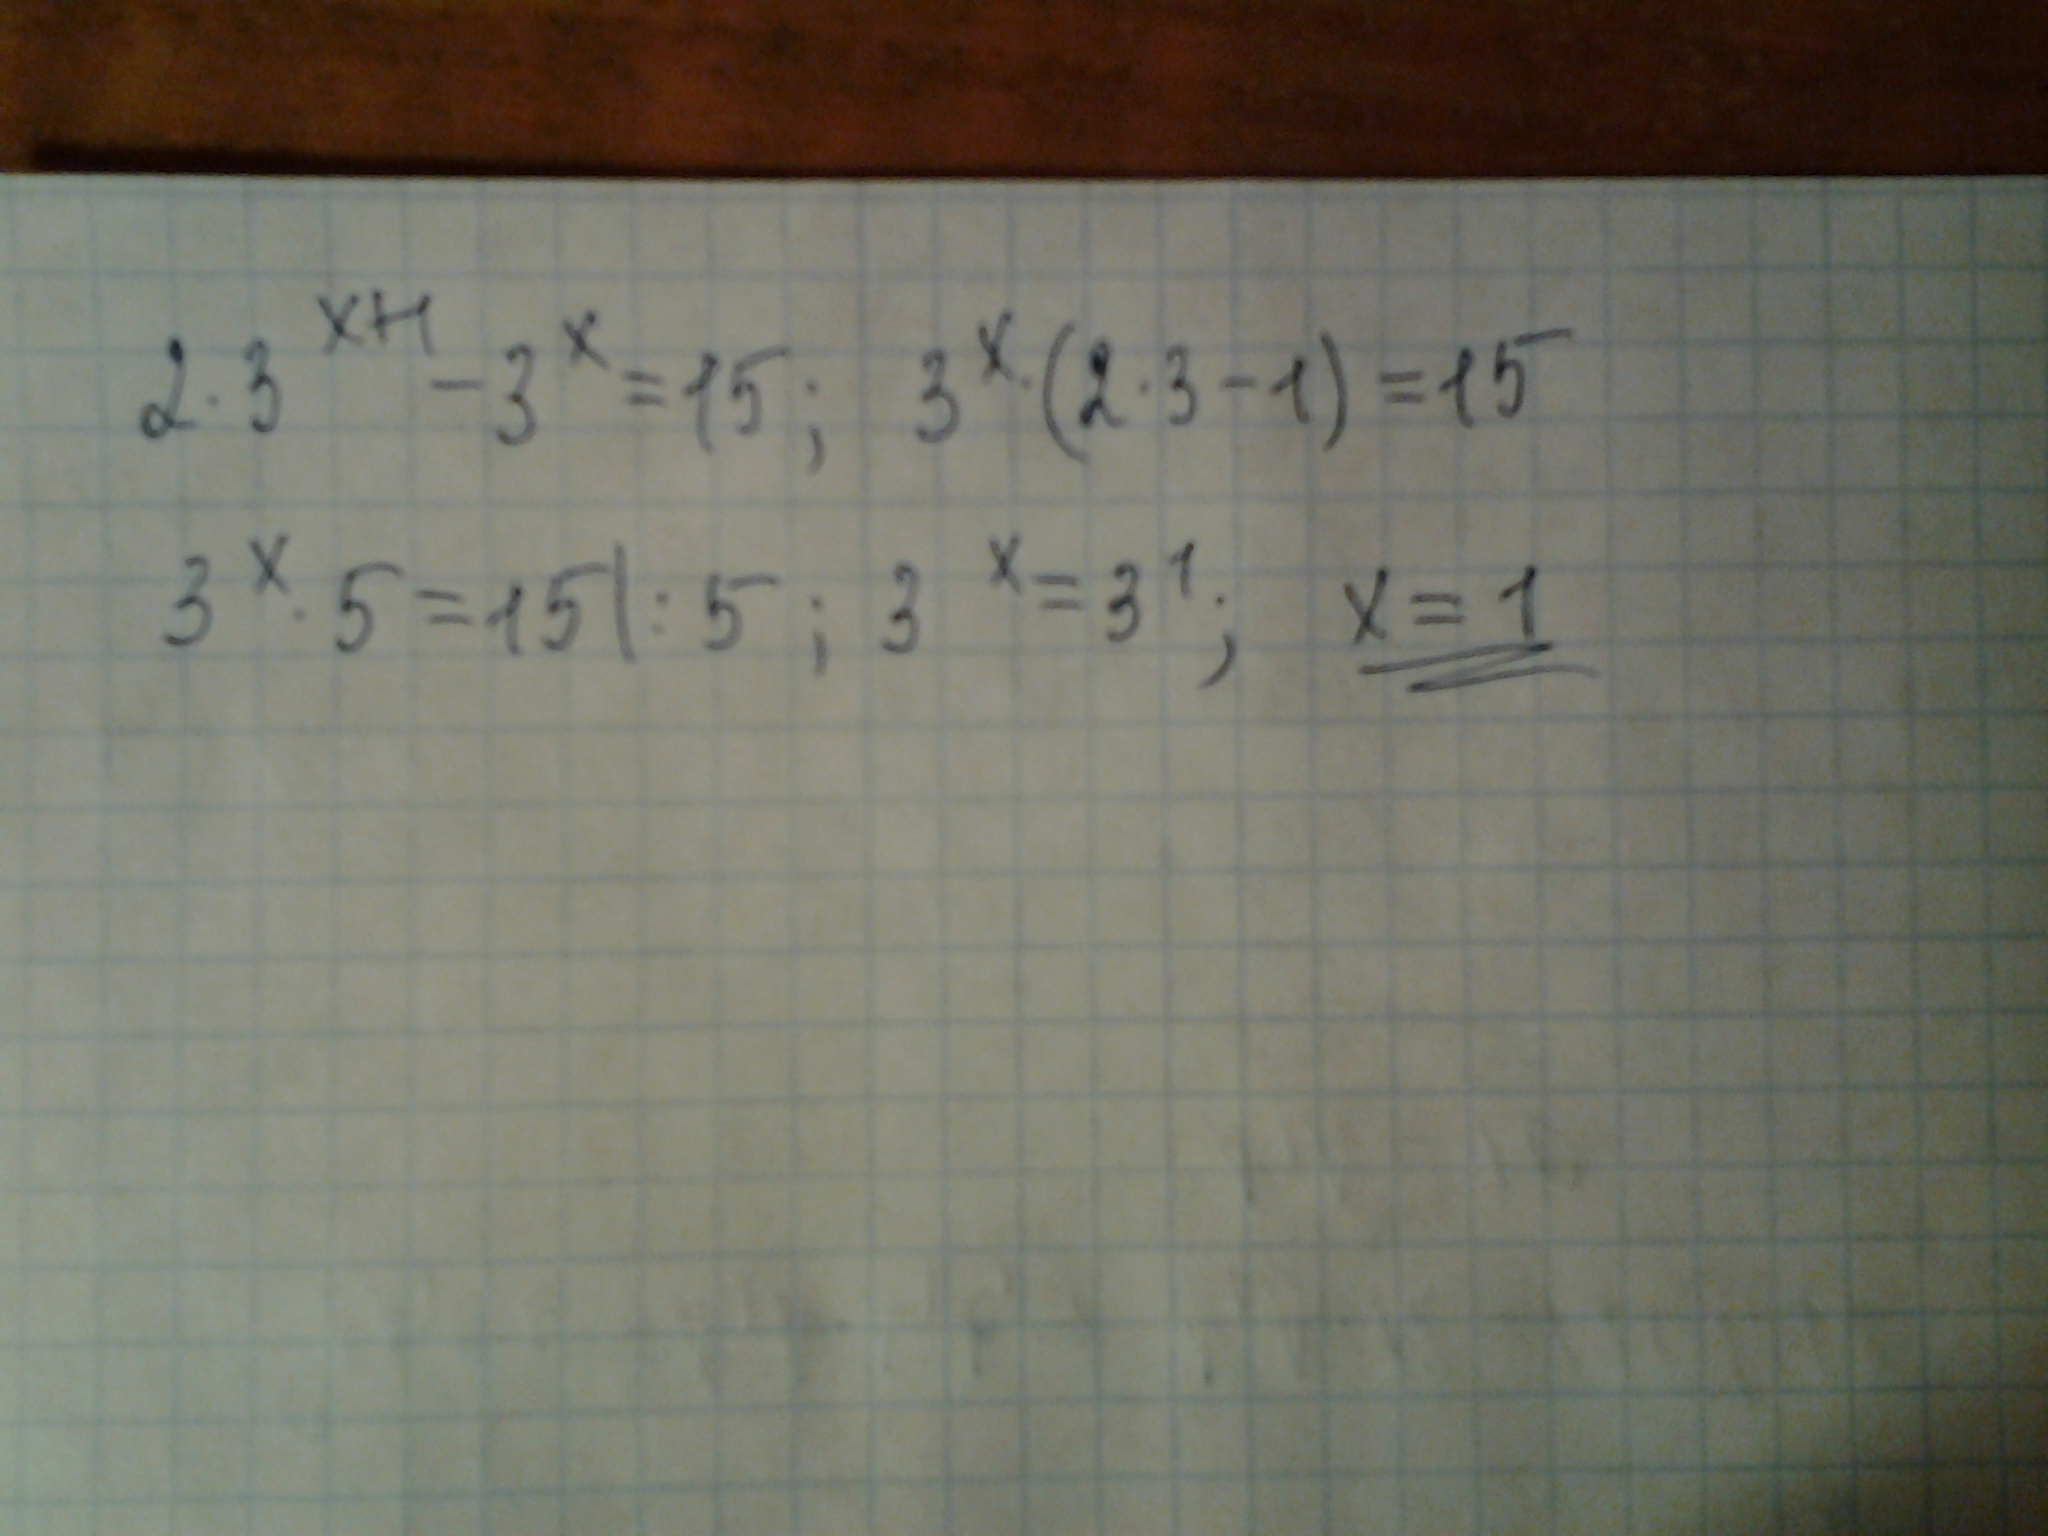 2·3^{x+1} - 3^x = 15; 3^x·(2·3-1) = 15
3^x·5 = 15 |: 5; 3^x = 3^1; x = 1